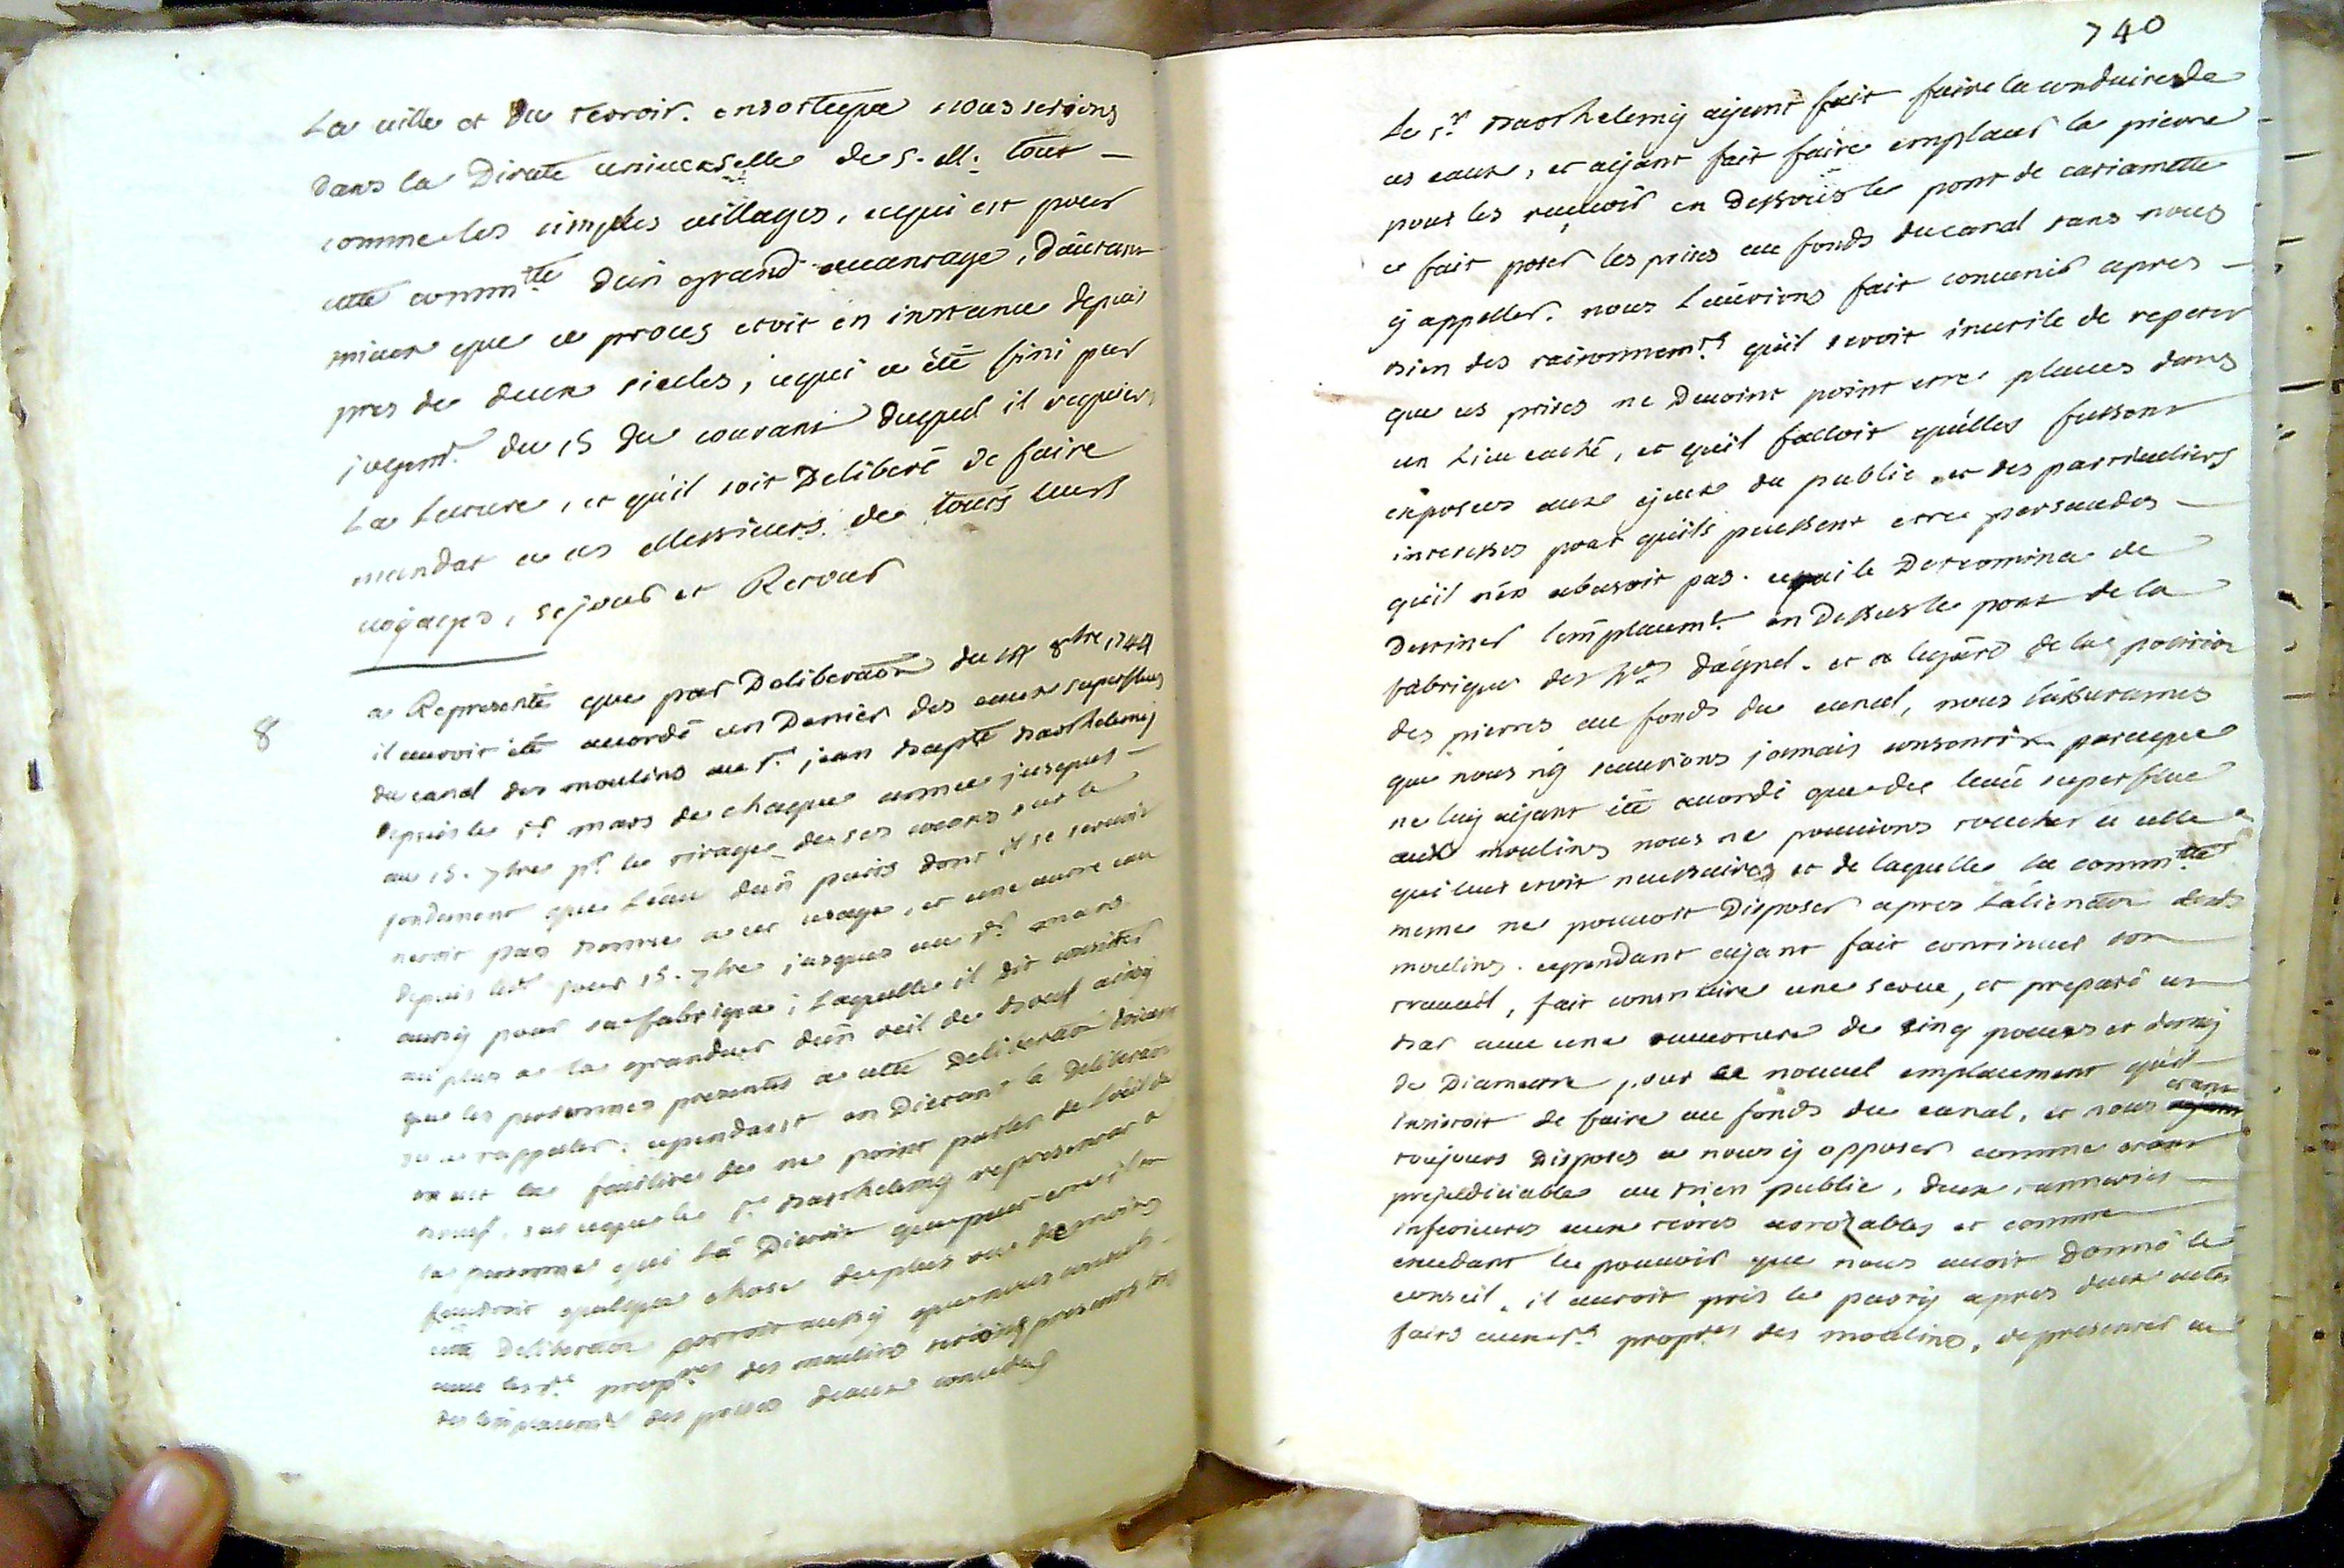 La ville et du terroir. ensorteque nous serions
dans la Directe universelle de S. M. tout
comme les simples villages, cequi est pour
cette comm.te d'un grand avantage, d'autant
mieux que ce proces etoit en instance depuis
pres de deux siecles, cequi a été fini par
jugem.t du 15 du courant duquel il requiert
La Lecture, et qu'il soit Deliberé de faire
mandat a ces Messieurs de tous leurs
voyages, sejour et Retour
8
a Representé que par Deliberaôn du 8bre 1744
il auroit été accordé un Denier des eaux superflues
du canal des moulins au S.r jean Bapte Barthelemy
depuis le p.r mars de chaque année jusques
au 15. 7bre p.r le tirage de ses cocons sur le
fondement que l'eau d'un puits dont il se servoit
n'etoit pas bonne a cet usage, et une autre eau
depuis led. jour 15. 7bre jusques au p.r mars
aussy pour sa fabrique; laquelle il dit consister
au plus a la grandeur d'un oeil de boeuf ainsy
que les personnes presentes a cette Deliberaôn doivent
se le rappeller. cependant en Dictant la Deliberaôn
on eut la facilité de ne point parler de l'oeil de
boeuf, sur ceque le S.r Barthelemy representat a
la personne qui la Dictoit que peut etre il en
faudroit quelque chose de plus ou de moins
cette Deliberaôn portoit aussy que nous
avec les S.rs prop.res des moulins serions presents lors
de l'emplacem.t des prises d'eaux concedées
740
Le S.r Barthelemy ayant fait faire la conduite de
ces eaux, et ayant fait faire emplacer la pierre
pour les recevoir en dessous le pont de cariamette
et fait poser les prises au fonds du canal sans nous
y appeller. nous l'aurions fait convenir apres
bien des raisonnem.ts qu'il seroit inutile de repeter
que ces prises ne Devoint point etre placées dans
un Lieu caché, et qu'il falloit qu'elles fussent
exposées aux yeux du public et des particuliers
interessés pour qu'ils pussent etre persuadés
qu'il n'en abusoit pas. cequi le Determina de
Destiner l'emplacem.t en Dessus le pont de la
fabrique des h.rs d'aignel. et a l'egard de la position
des pierres au fonds du canal, nous l'assurames
que nous n'y saurions jamais consentir parceque
ne luy ayant été accordé que de l'eau superflue
aux moulins nous ne pouvions toucher a celle
qui leur etoit necessaire et de laquelle la comm.té
meme ne pouvoit Disposer apres l'alienaôn desd.
moulins. cependant ayant fait continuer son
travail, fait construire une serve, et preparé un
bar avec une ouverture de cinq pouces et demy
de Diametre pour le nouvel emplacement qu'il
Insistoit de faire au fonds du canal, et nous etant
toujours Disposés a nous y opposer comme etant
prejudiciable au bien public, deux tanneries
inferieures aux terres arrosables et comme
excedant le pouvoir que nous avoit donné le
conseil. il auroit pris le party apres deux actes
faits aux S.rs prop.res des moulins, de presenter au